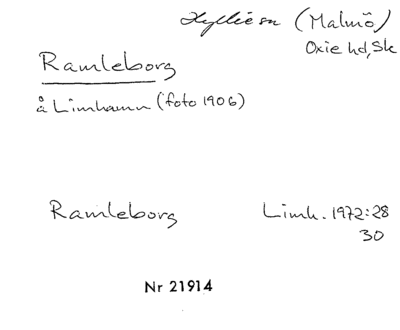 Hyllie sn (Malmö)
Oxie hd, Sk
Ramleborg
å Limhamn (foto 1906)
Ramleborg Limh. 1972:28
30
Nr 21914